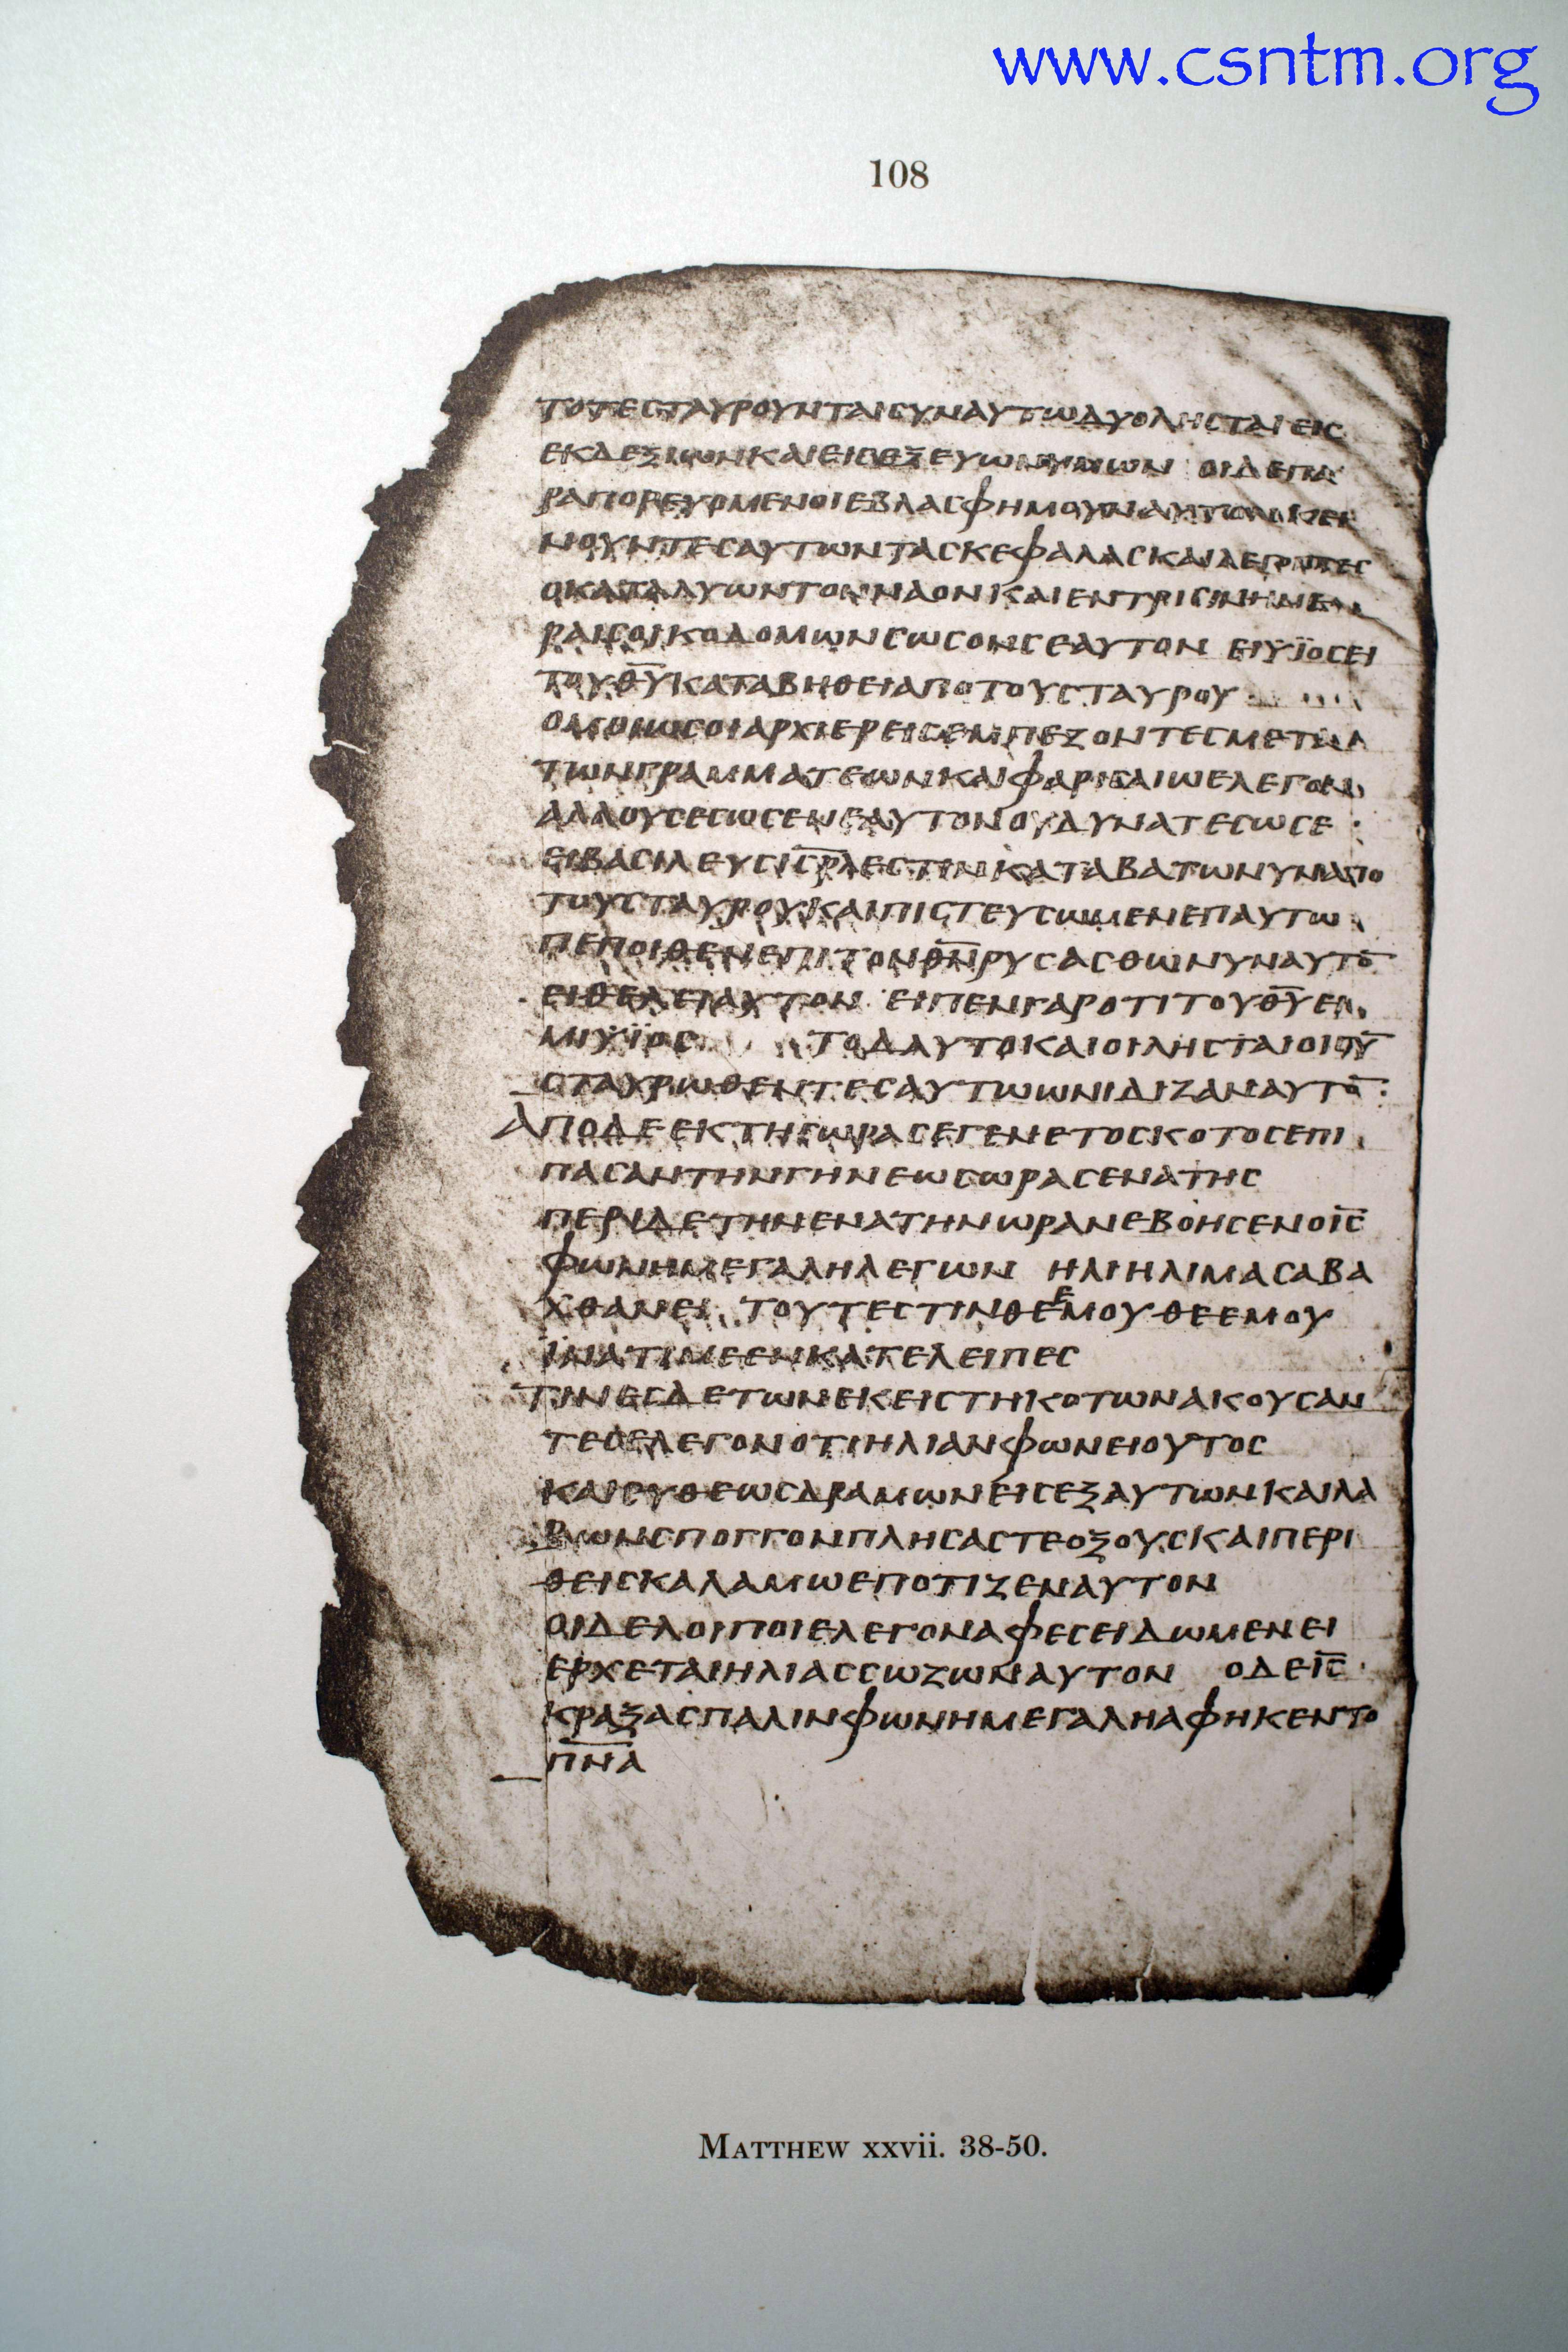 www.csntm.org
108
ΤΟΤΕΣΤΑΥΡΟΥΝΤΑΙΣΥΝΑΥΤΩΔΥΟΛΗΣΤΑΙΕΙΣ
ΕΚΔΕΞΙΩΝΚΑΙΕΙΣΕΞΕΥΩΝΥΜΩΝ ΟΙΔΕΠΑ
ΡΑΠΟΡΕΥΟΜΕΝΟΙΕΒΛΑΣΦΗΜΟΥΝΑΥΤΟΝΚΕΙ
ΝΟΥΝΤΕΣΑΥΤΩΝΤΑΣΚΕΦΑΛΑΣΚΑΙΛΕΓΟΝΤΕΣ
ΟΚΑΤΑΛΥΩΝΤΟΝΝΑΟΝΚΑΙΕΝΤΡΙΣΙΝΗΜΕ
ΡΑΙΣΟΙΚΟΔΟΜΩΝΣΩΣΟΝΣΕΑΥΤΟΝ ΕΙΥΪΟΣΕΙ
ΤΟΥΘ̅Υ̅ΚΑΤΑΒΗΘΕΙΑΠΟΤΟΥΣΤΑΥΡΟΥ
ΟΜΟΙΩΣΟΙΑΡΧΙΕΡΕΙΣΕΜΠΕΖΟΝΤΕΣΜΕΤΑ
ΤΩΝΓΡΑΜΜΑΤΕΩΝΚΑΙΦΑΡΙΣΑΙΩΕΛΕΓΟΝ
ΑΛΛΟΥΣΕΣΩΣΕΝΕΑΥΤΟΝΟΥΔΥΝΑΤΕΣΩΣΕ
ΕΙΒΑΣΙΛΕΥΣΙ̅Σ̅Ρ̅Λ̅ΕΣΤΙΝΚΑΤΑΒΑΤΩΝΥΝΑΠΟ
ΤΟΥΣΤΑΥΡΟΥΚΑΙΠΙΣΤΕΥΣΩΜΕΝΕΠΑΥΤΩ
ΠΕΠΟΙΘΕΝΕΠΙΤΟΝΘ̅Ν̅ΡΥΣΑΣΘΩΝΥΝΑΥΤΟ̅
ΕΙΘΕΛΕΙΑΥΤΟΝ ΕΙΠΕΝΓΑΡΟΤΙΤΟΥΘ̅Υ̅ΕΙ
ΜΙΥΪΟΣ ΤΟΔΑΥΤΟΚΑΙΟΙΛΗΣΤΑΙΟΙΣΥ̅
ΣΤΑΥΡΩΘΕΝΤΕΣΑΥΤΩΩΝΙΔΙΖΑΝΑΥΤΟ̅:
ΑΠΟΔΕΕΚΤΗΣΩΡΑΣΕΓΕΝΕΤΟΣΚΟΤΟΣΕΠΙ
ΠΑΣΑΝΤΗΝΓΗΝΕΩΣΩΡΑΣΕΝΑΤΗΣ
ΠΕΡΙΔΕΤΗΝΕΝΑΤΗΝΩΡΑΝΕΒΟΗΣΕΝΟΙ̅Σ̅
ΦΩΝΗΜΕΓΑΛΗΛΕΓΩΝ ΗΛΙΗΛΙΜΑΣΑΒΑ
ΧΘΑΝΕΙ ΤΟΥΤΕΣΤΙΝΘΕΕΜΟΥΘΕΕΜΟΥ
ΪΝΑΤΙΜΕΕΝΚΑΤΕΛΕΙΠΕΣ
ΤΙΝΕΣΔΕΤΩΝΕΚΕΙΣΤΗΚΟΤΩΝΑΚΟΥΣΑΝ
ΤΕΣΕΛΕΓΟΝΟΤΙΗΛΙΑΝΦΩΝΕΙΟΥΤΟΣ
ΚΑΙΕΥΘΕΩΣΔΡΑΜΩΝΕΙΣΕΞΑΥΤΩΝΚΑΙΛΑ
ΒΩΝΣΠΟΓΓΟΝΠΛΗΣΑΣΤΕΟΞΟΥΣΚΑΙΠΕΡΙ
ΘΕΙΣΚΑΛΑΜΩΕΠΟΤΙΖΕΝΑΥΤΟΝ
ΟΙΔΕΛΟΙΠΟΙΕΛΕΓΟΝΑΦΕΣΕΙΔΩΜΕΝΕΙ
ΕΡΧΕΤΑΙΗΛΙΑΣΣΩΖΩΝΑΥΤΟΝ ΟΔΕΙ̅Σ̅
ΚΡΑΞΑΣΠΑΛΙΝΦΩΝΗΜΕΓΑΛΗΑΦΗΚΕΝΤΟ
Π̅Ν̅Α̅
MATTHEW xxvii. 38-50.